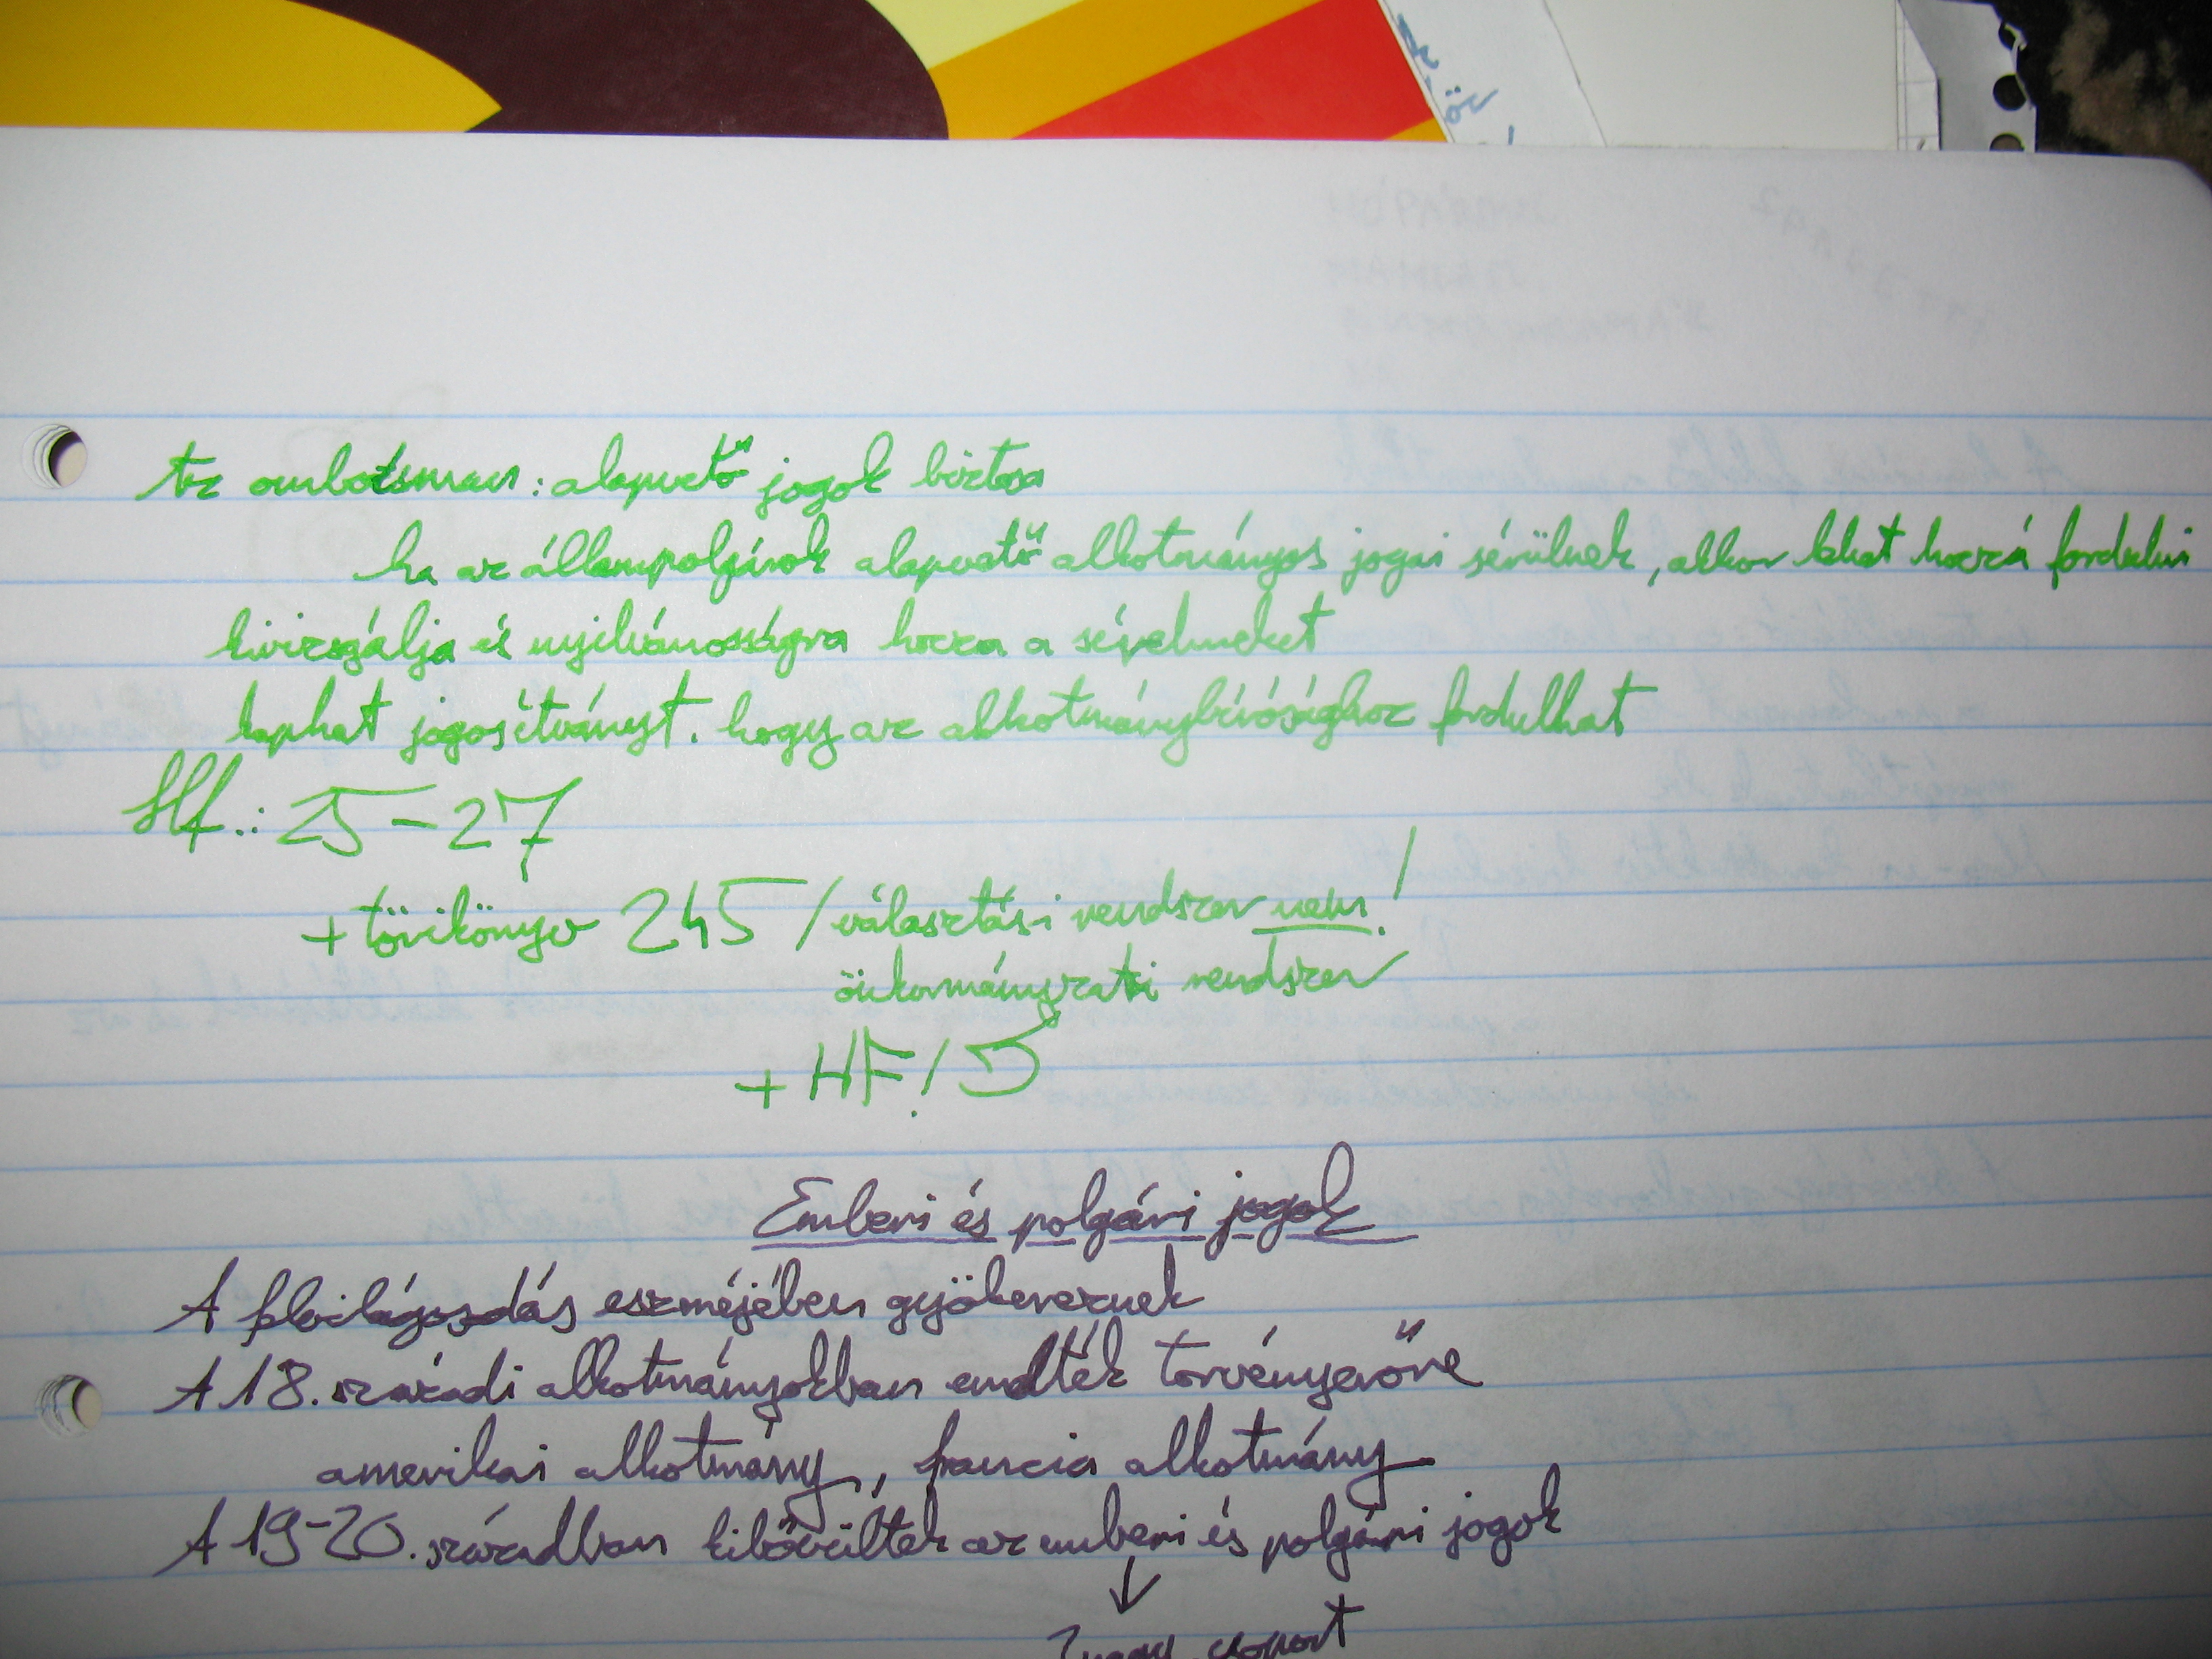 Az ombudsman: alapvető jogok biztosa
ha az állampolgárok alapvető alkotmányos jogai sérülnek, akkor lehet hozzá fordulni
kivizsgálja és nyilvánosságra hozza a sérelmeket
kaphat jogosítványt, hogy az alkotmánybírósághoz fordulhat
Hf.: 25-27
+ törikönyv 245 / választási rendszer nem!
önkormányzati rendszer
+ HF! D
Emberi és polgári jogok
A felvilágosodás eszméjében gyökereznek
A 18. századi alkotmányokban emelték törvényerőre
amerikai alkotmány, francia alkotmány
A 19-20. században kibővültek az emberi és polgári jogok
↓
csoport